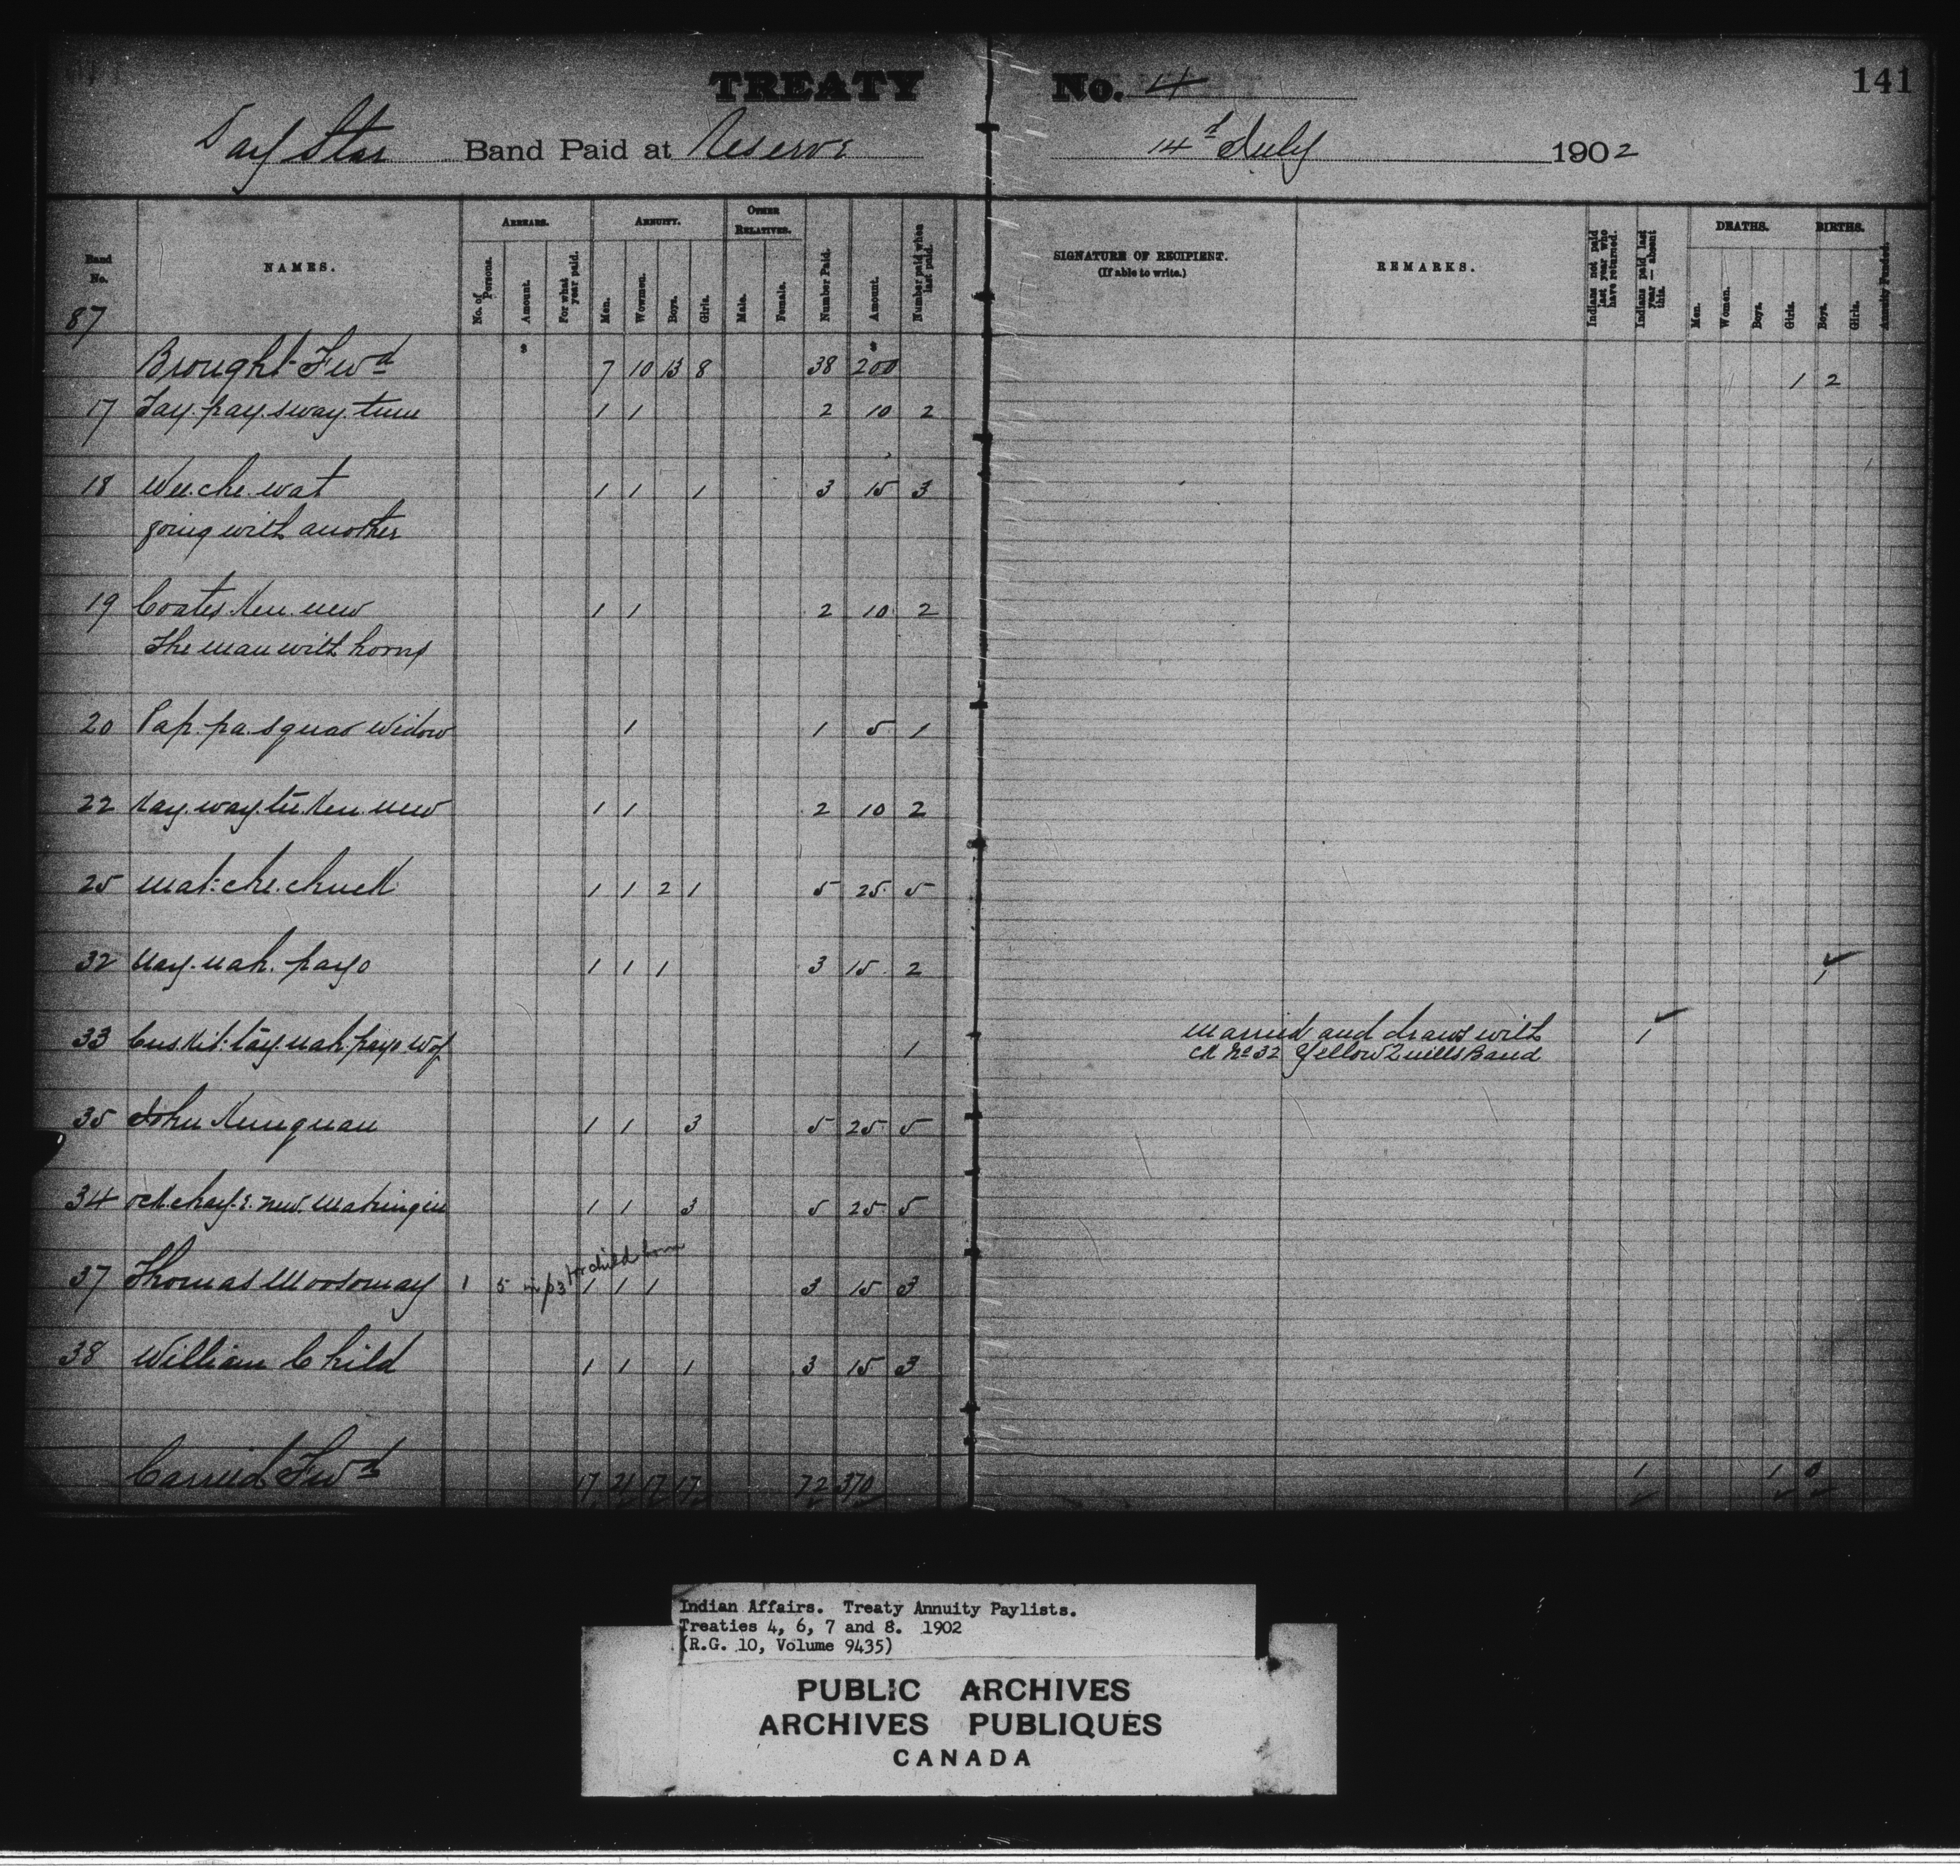 TREATY No. 4 141
Day Star Band Paid at Reserve 14th July 1902
ARREARS. ANNUITY. OTHER RELATIVES. DEATHS. BIRTHS.
Band No. NAMES. No. of Persons. Amount. For what year paid. Men. Women. Boys. Girls. Male. Female. Number Paid. Amount. Number paid when last paid. SIGNATURE OF RECIPIENT. (If able to write.) REMARKS. Indians not paid last year who have returned. Indians paid last year — absent this. Men. Women. Boys. Girls. Boys. Girls. Annuity Funded.
87
Brought Fwd $ 7 10 13 8 38 $ 200 1 2
17 Tay. pay. sway. tum 1 1 2 10 2
18 Wee. che. wat 1 1 1 3 15 3
going with another
19 Coates. Ken. new 1 1 2 10 2
The man with horns
20 Pap. pa. squao Widow 1 1 5 1
22 Kay. way. tu. Ken. new 1 1 2 10 2
25 Mat. che. chuck 1 1 2 1 5 25 5
32 Nay. nah. payo 1 1 1 3 15 2 1
33 Cus. Kit. tay. nah. payo Wof 1 Married and draws with 1
ck No 32 Yellow Quills Band
35 John Kinequan 1 1 3 5 25 5
34 ock. chay. e. new. 1 1 3 5 25 5
for child born
37 Thomas Moosomay 1 5 1 1 1 3 15 3
38 William Child 1 1 1 3 15 3
Carried Fwd 17 21 17 17 72 370 1 1
Indian Affairs. Treaty Annuity Paylists.
Treaties 4, 6, 7 and 8. 1902
(R.G. 10, Volume 9435)
PUBLIC ARCHIVES
ARCHIVES PUBLIQUES
CANADA